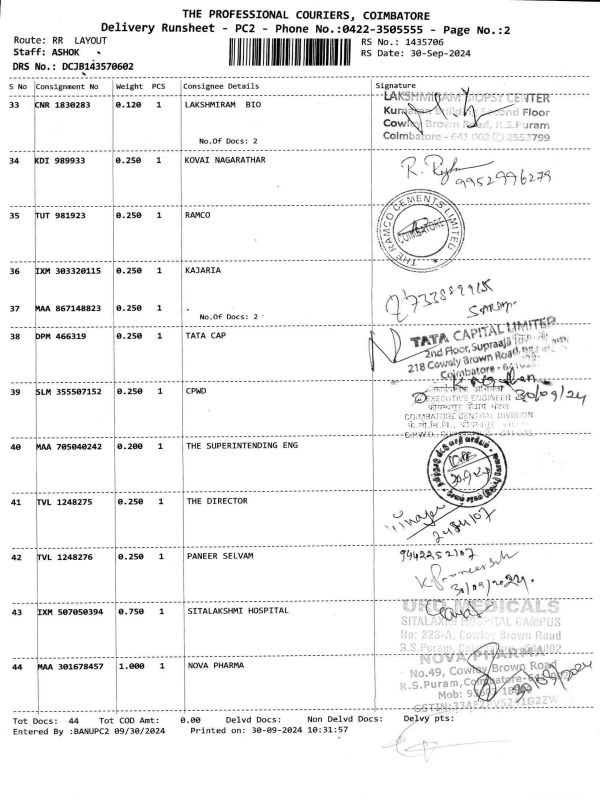 THE PROFESSIONAL COURIERS, COIMBATORE
Delivery Runsheet - PC2 - Phone No.:0422-3505555 - Page No.:2
Route: RR LAYOUT RS No.: 1435706
Staff: ASHOK RS Date: 30-Sep-2024
DRS No.: DCJB143570602
S No Consignment No Weight PCS Consignee Details Signature
33 CNR 1830283 0.120 1 LAKSHMIRAM BIO
LAKSHMIRAM BIOPSY CENTER
Second Floor
Cowley Brown Road, R.S.Puram
No.Of Docs: 2
Coimbatore - 641 002 2553799
34 KDI 989933 0.250 1 KOVAI NAGARATHAR
9952996279
35 TUT 981923 0.250 1 RAMCO
THE RAMCO CEMENTS LIMITED
COIMBATORE
36 IXM 303320115 0.250 1 KAJARIA
37 MAA 867148823 0.250 1 .
No.Of Docs: 2
38 DPM 466319 0.250 1 TATA CAP
TATA CAPITAL LIMITED
2nd Floor, Supraaja
218 Cowsly Brown Road,
Coimbatore -
39 SLM 355507152 0.250 1 CPWD
EXECUTIVE ENGINEER 30/09/24
COIMBATORE CENTRAL DIVISION
40 MAA 705040242 0.200 1 THE SUPERINTENDING ENG
41 TVL 1248275 0.250 1 THE DIRECTOR
42 TVL 1248276 0.250 1 PANEER SELVAM
9442252107
30/09/2024.
43 IXM 507050394 0.750 1 SITALAKSHMI HOSPITAL
URO MEDICALS
SITALAXMI HOSPITAL CAMPUS
No: 223-A, Cowley Brown Road
R.S.Puram,
44 MAA 301678457 1.000 1 NOVA PHARMA
NOVA PHARMA
No.49, Cowley Brown Road
R.S.Puram, Coimbatore-
Mob:
30/09/2024
Tot Docs: 44 Tot COD Amt: 0.00 Delvd Docs: Non Delvd Docs: Delvy pts:
Entered By :BANUPC2 09/30/2024 Printed on: 30-09-2024 10:31:57